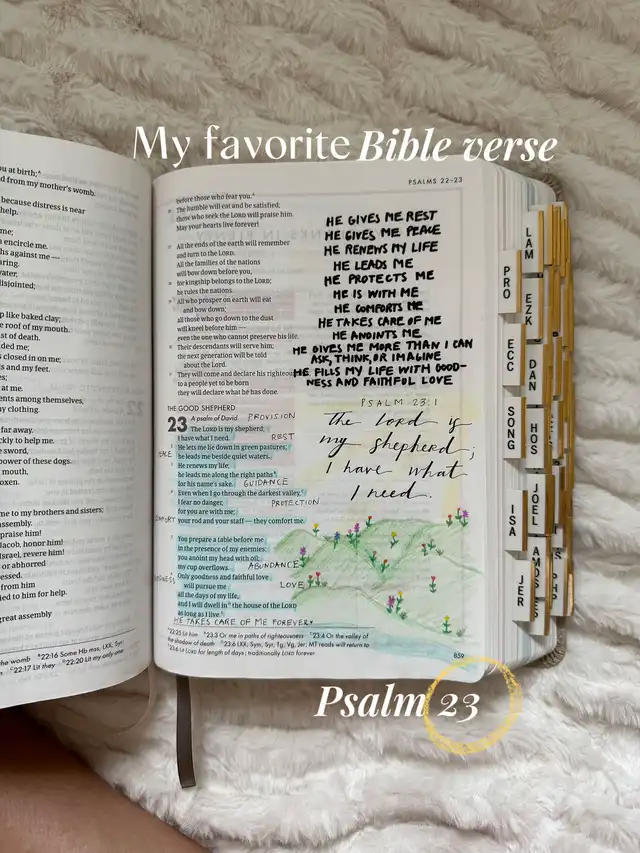 My favorite Bible verse
u at birth;
d from my mother's womb.
because distress is near
help.
me;
encircle me.
hs against me —
aring.
vater,
disjointed;
p like baked clay;
e roof of my mouth.
st of death.
ded me;
s closed in on me;
s and my feet.
es;
at me.
ents among themselves,
y clothing.
far away.
ckly to help me.
e sword,
power of these dogs.
mouth,
oxen.
me to my brothers and sisters;
assembly.
praise him!
Jacob, honor him!
Israel, revere him!
or abhorred
essed.
from him
ied to him for help.
great assembly
he womb 22:16 Some Hb mss, LXX, Syr
22:17 Lit they 22:20 Lit my only one
PSALMS 22–23
before those who fear you.
The humble will eat and be satisfied;
those who seek the LORD will praise him.
May your hearts live forever!
All the ends of the earth will remember
and turn to the LORD.
All the families of the nations
will bow down before you,
for kingship belongs to the LORD;
he rules the nations.
All who prosper on earth will eat
and bow down;
all those who go down to the dust
will kneel before him —
even the one who cannot preserve his life.
Their descendants will serve him;
the next generation will be told
about the Lord.
They will come and declare his righteou
to a people yet to be born
they will declare what he has done.
THE GOOD SHEPHERD
23 A psalm of David. PROVISION
The LORD is my shepherd;
I have what I need. REST
He lets me lie down in green pastures;
he leads me beside quiet waters.
He renews my life;
he leads me along the right paths
for his name's sake. GUIDANCE
Even when I go through the darkest valley,
I fear no danger, PROTECTION
for you are with me;
your rod and your staff — they comfort me.
You prepare a table before me
in the presence of my enemies;
you anoint my head with oil;
my cup overflows. ABUNDANCE
Only goodness and faithful love
will pursue me LOVE
all the days of my life,
and I will dwell in the house of the LORD
as long as I live.
HE TAKES CARE OF ME FOREVER
22:25 Lit him 23:3 Or me in paths of righteousness 23:4 Or the valley of
the shadow of death 23:6 LXX, Sym, Syr, Tg, Vg, Jer; MT reads will return to
23:6 Lit LORD for length of days; traditionally LORD forever
859
HE GIVES ME REST
HE GIVES ME PEACE
HE RENEWS MY LIFE
HE LEADS ME
HE PROTECTS ME
HE IS WITH ME
HE COMFORTS ME
HE TAKES CARE OF ME
HE ANOINTS ME
HE GIVES ME MORE THAN I CAN
ASK, THINK, OR IMAGINE
HE FILLS MY LIFE WITH GOOD-
NESS AND FAITHFUL LOVE
PSALM 23:1
The Lord is
my shepherd;
I have what
I need.
LAM
PRO
EZK
ECC
DAN
SONG
HOS
JOEL
ISA
AMOS
JER
Psalm 23